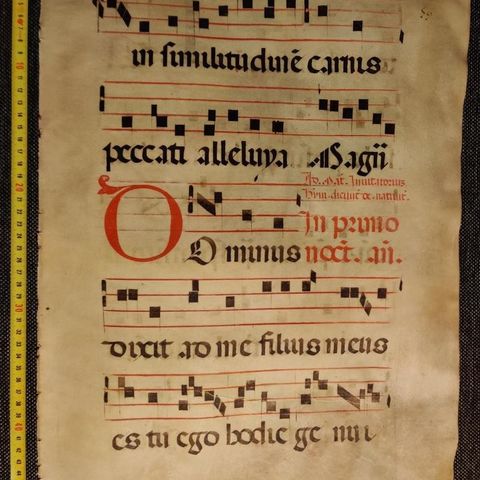 in similitudinē carnis
peccati alleluya Magñ
Ad. Mat. Inuitatorius
In primo
DOminus noct. añ.
dixit ad me filius meus
es tu ego hodie ge nui
10
20
30
40